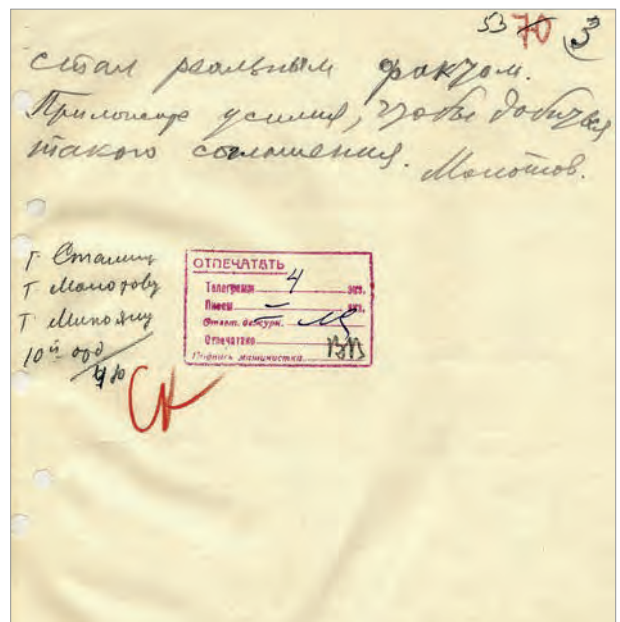 53 70 3
стал реальным фактом.
Приложите усилия, чтобы добиться
такого соглашения. Молотов.
т. Сталину
т. Молотову
т. Микояну
10й отд
ОТПЕЧАТАТЬ
Телеграмм 4 экз.
Письм — экз.
Ответ. дежурн.
Отпечатано ВВ
Подпись машинистки